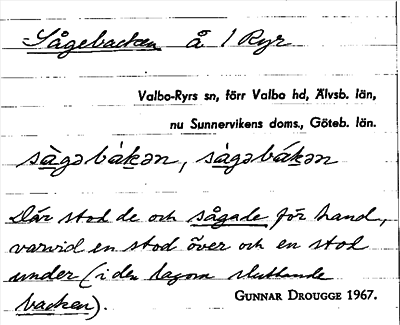 Sågebacken å / Ryr
Valbo-Ryrs sn, förr Valbo hd, Älvsb. län,
nu Sunnervikens doms., Göteb. län.
sàgəbák̲ən, sàgəbák̲ən
Där stod de och sågade för hand,
varvid en stod över och en stod
under (i den lagom sluttande
backen).
GUNNAR DROUGGE 1967.